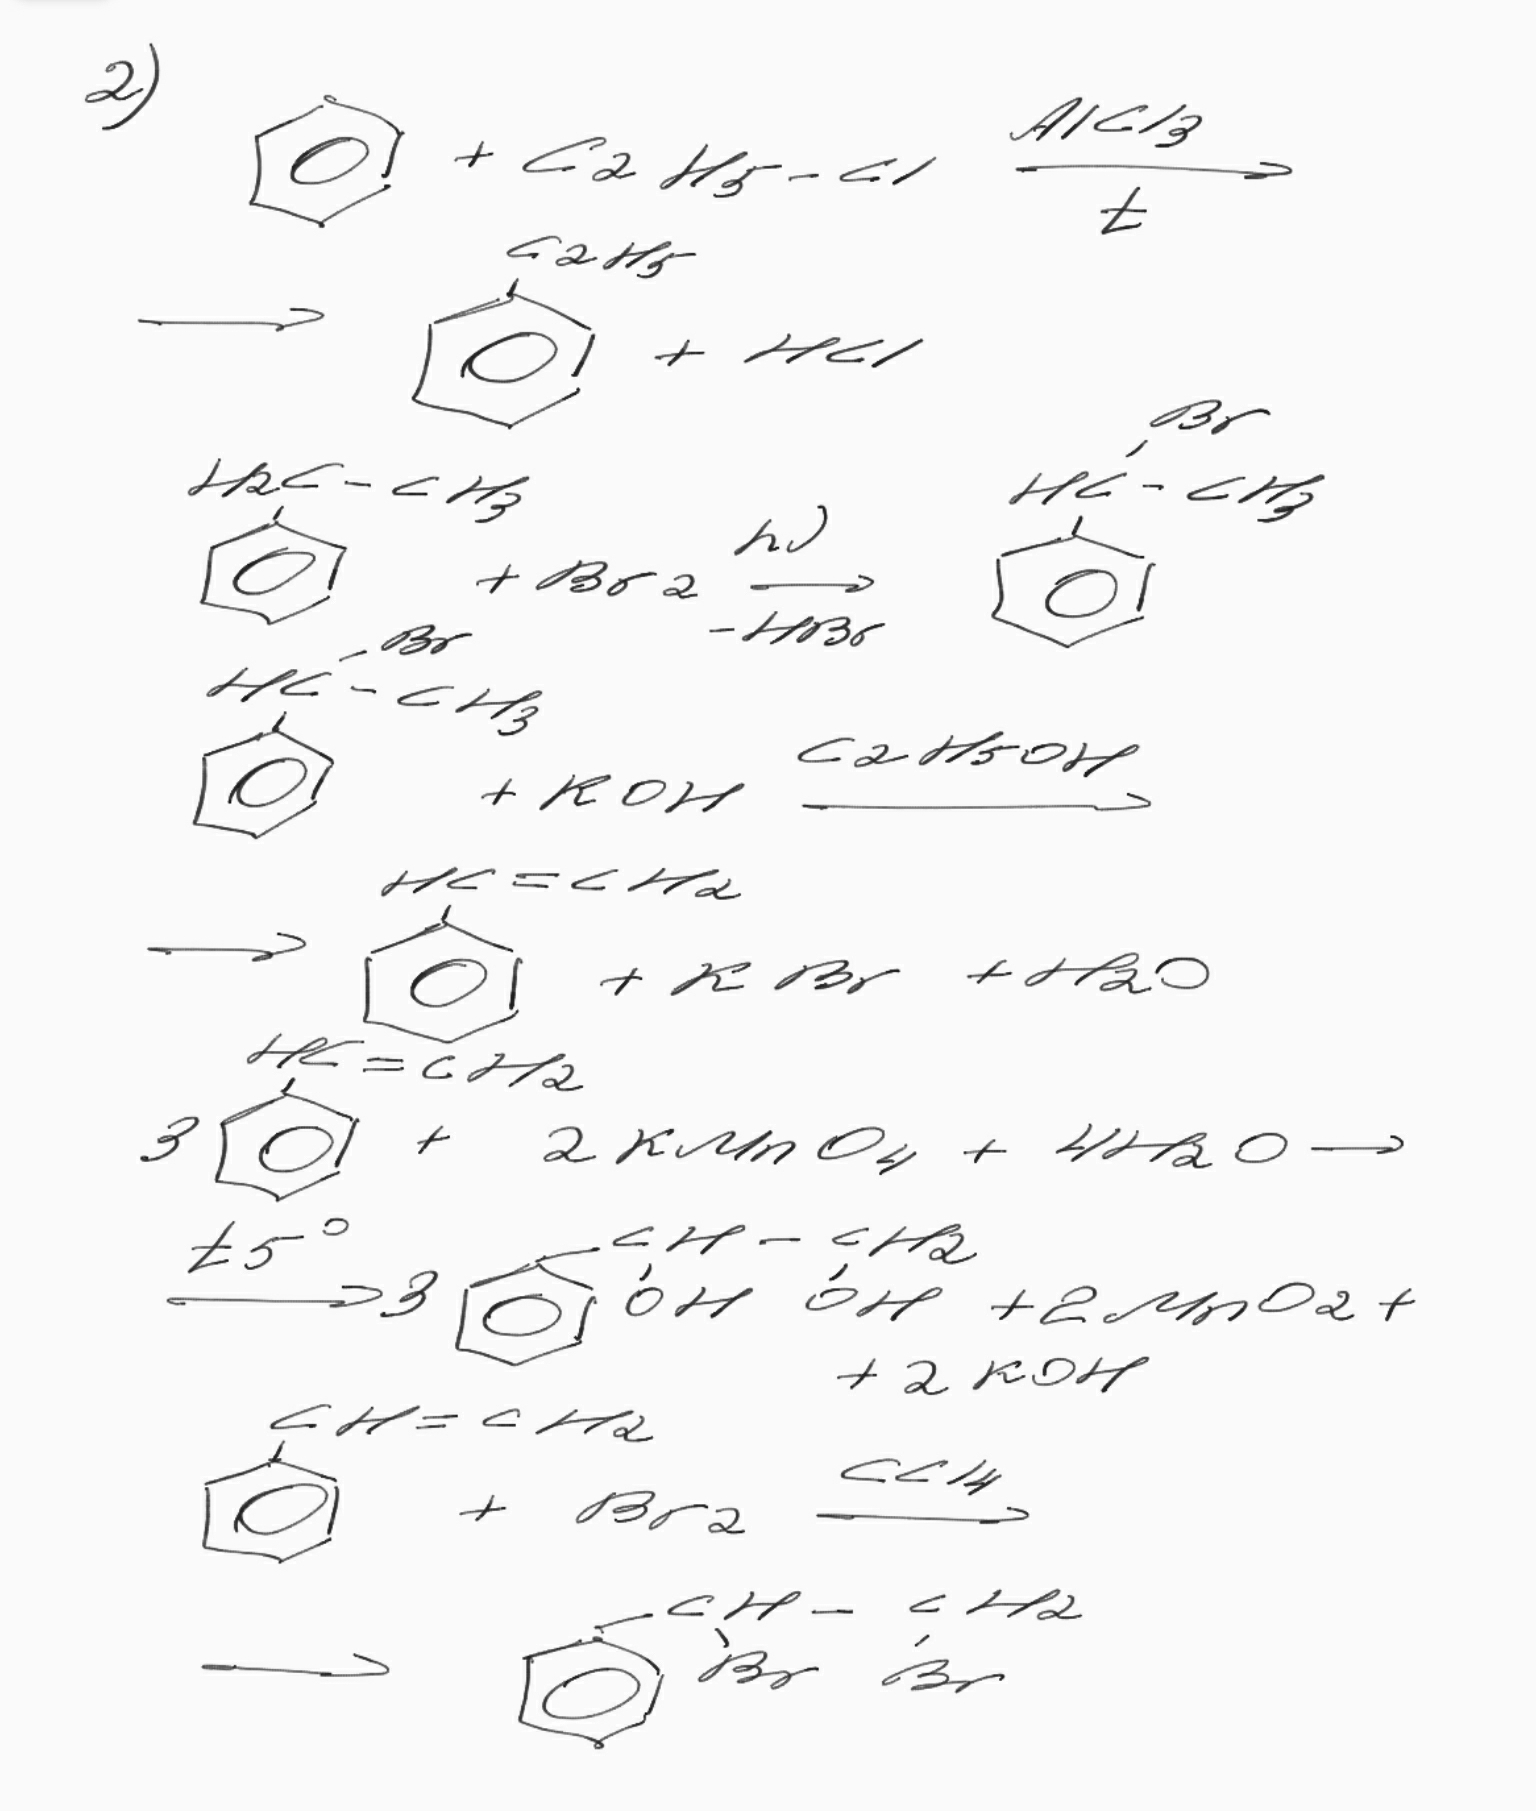 2)
+ C2H5-Cl AlCl3
t
C2H5
+ HCl
Br
H2C-CH3 HC-CH3
+ Br2 hν
-HBr
Br
HC-CH3
+ KOH C2H5OH
HC=CH2
+ KBr + H2O
HC=CH2
3 + 2KMnO4 + 4H2O →
t5° CH-CH2
3 OH OH + 2MnO2 +
+ 2KOH
CH=CH2
+ Br2 CCl4
CH-CH2
Br Br